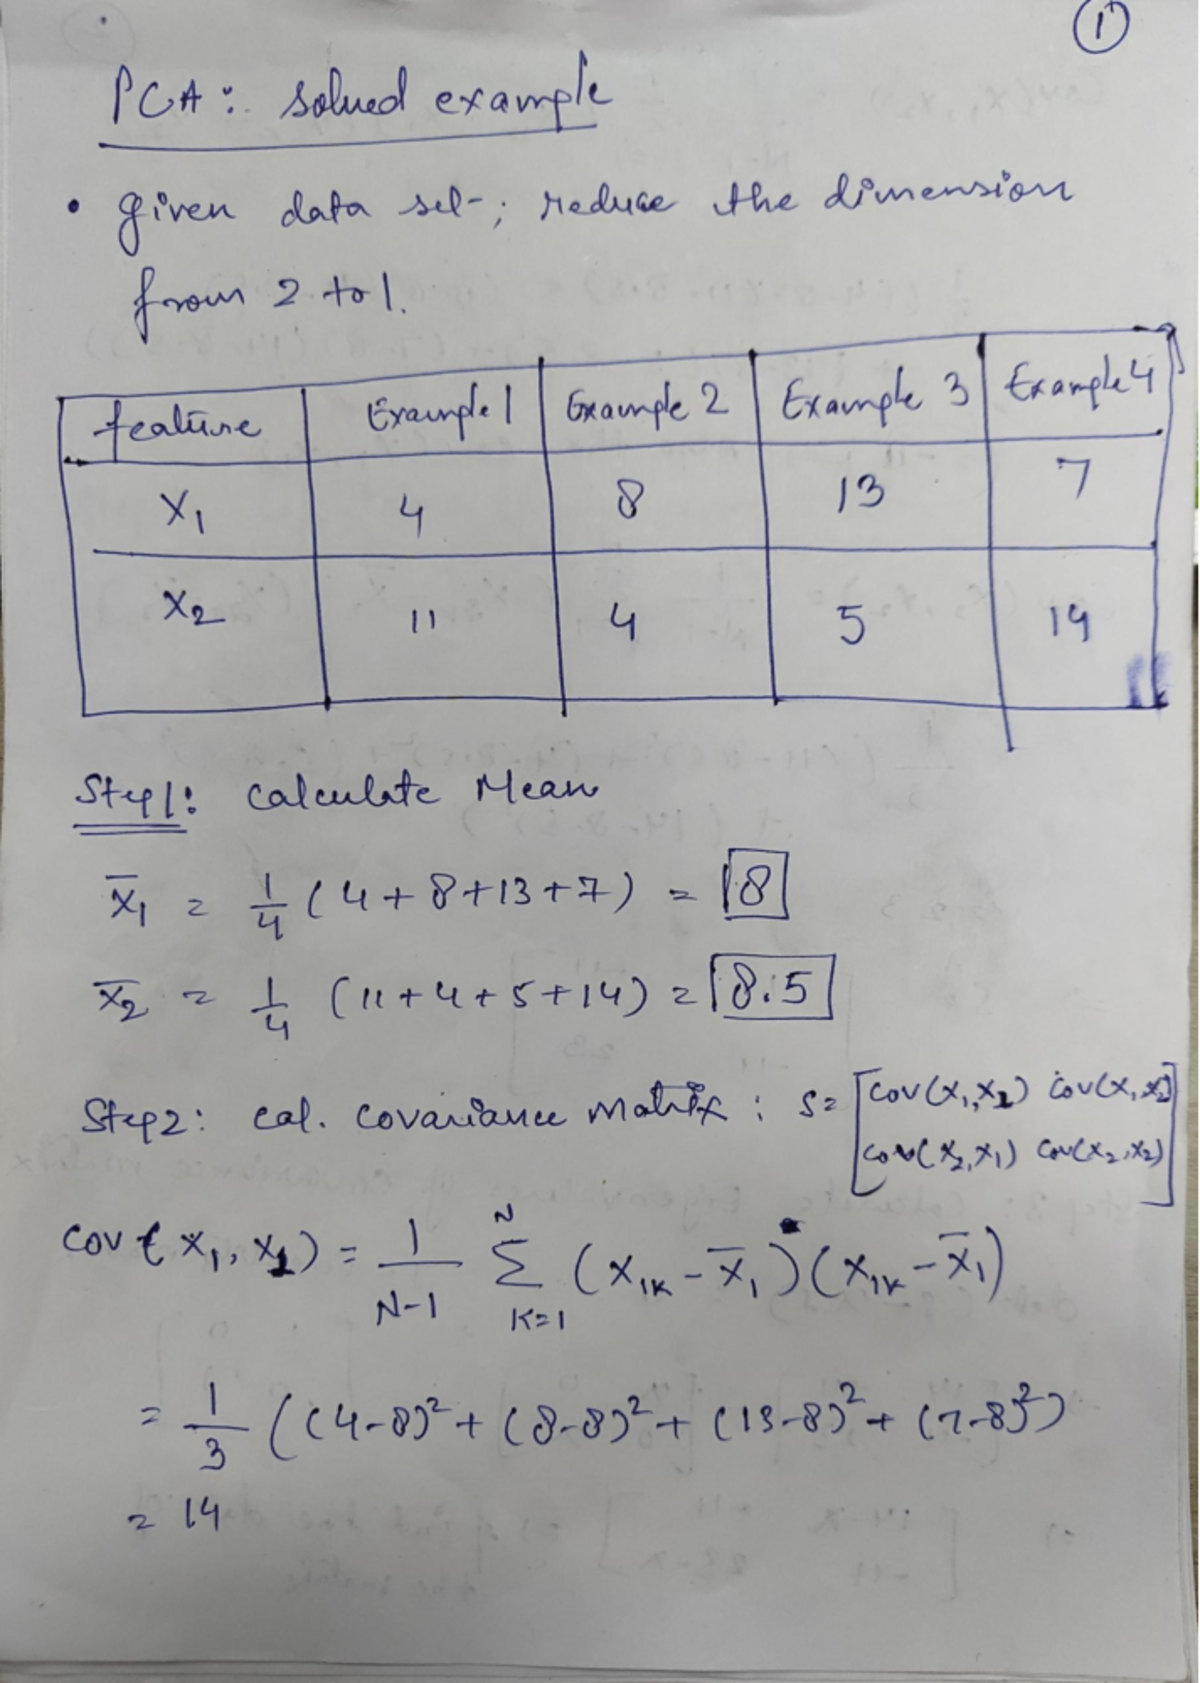 1
PCA: solved example
• given data set; reduce the dimension
from 2 to 1.
feature Example 1 Example 2 Example 3 Example 4
X₁ 4 8 13 7
X₂ 11 4 5 14
Step1: Calculate Mean
x̄₁ = 1/4 (4+8+13+7) = 8
x̄₂ = 1/4 (11+4+5+14) = 8.5
Step2: cal. covariance matrix : S= [cov(x₁,x₂) cov(x₁,x₂)
cov(x₂,x₁) cov(x₂,x₂)]
cov(x₁, x₁) = 1/(N-1) Σ_{K=1}^{N} (x₁ₖ - x̄₁)(x₁ₖ - x̄₁)
= 1/3 ((4-8)² + (8-8)² + (13-8)² + (7-8)²)
= 14